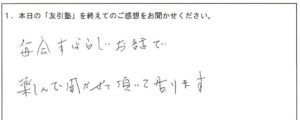 1．本日の「友引塾」を終えてのご感想をお聞かせください。
毎回すばらしいお話で
楽しんで聞かせて頂いて居ります